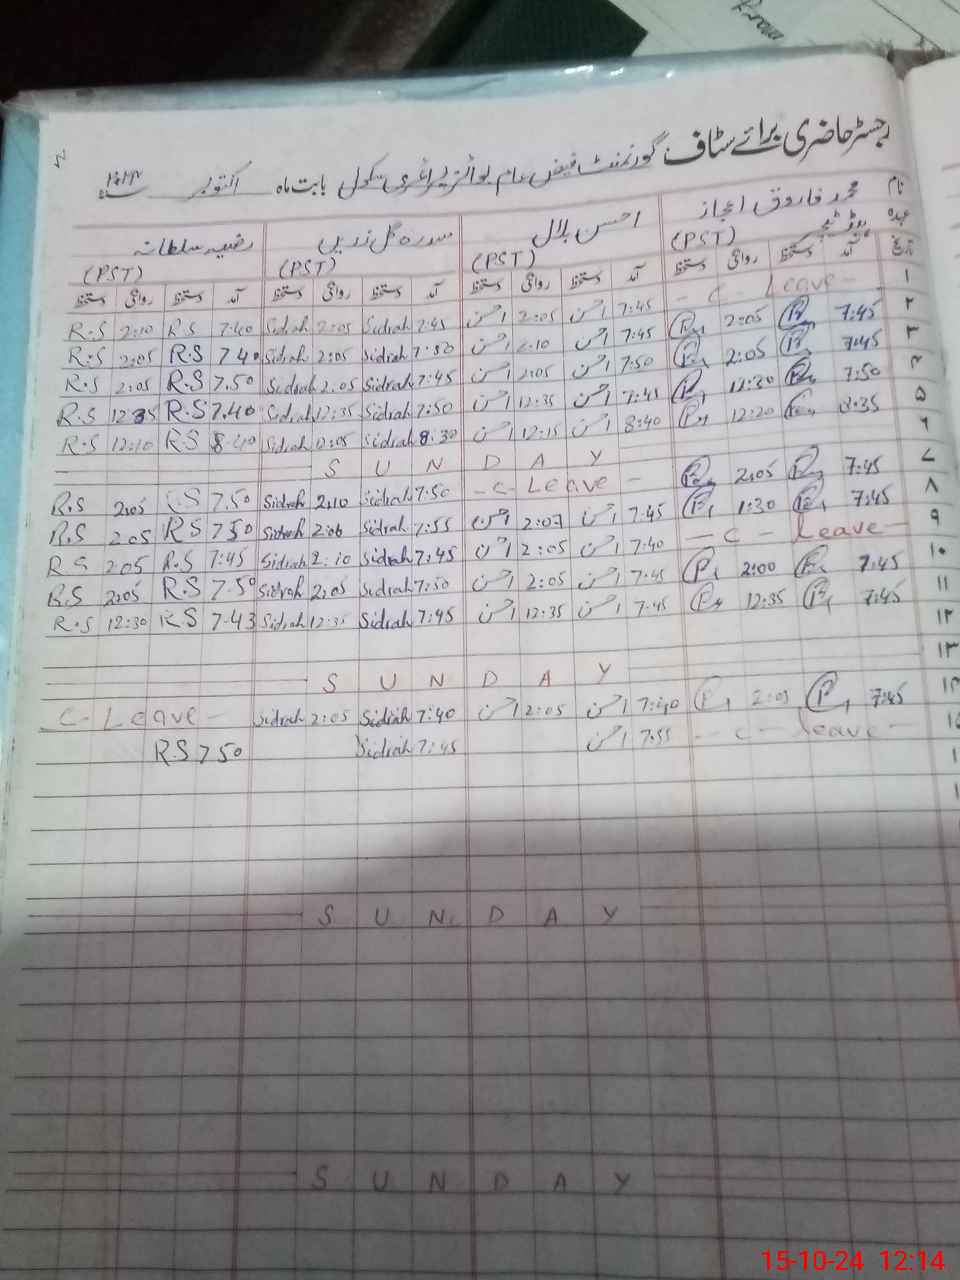 رجسٹر حاضری برائے سٹاف گورنمنٹ فیض عام بوائز پرائمری سکول بابت ماہ اکتوبر ۲۰۲۴
نام محمد فاروق اعجاز احسن بلال سدرہ گل زریں رضیہ سلطانہ
عہدہ ہیڈ ٹیچر (PST) (PST) (PST) (PST)
تاریخ آمد دستخط روانگی دستخط آمد دستخط روانگی دستخط آمد دستخط روانگی دستخط آمد دستخط روانگی دستخط
۱ - C - Leave - 7:45 احسن 2:05 احسن 7:45 Sidrah 2:05 Sidrah 7:40 R.S 2:10 R.S
۲ 7:45 2:05 7:45 احسن 2:10 احسن 7:50 Sidrah 2:05 Sidrah 7 40 R.S 2:05 R.S
۳ 7:45 2:05 7:50 احسن 2:05 احسن 7:45 Sidrah 2:05 Sidrah 7.50 R.S 2:05 R.S
۴ 7:50 12:30 7:45 احسن 12:35 احسن 7:50 Sidrah 12:35 Sidrah 7.40 R.S 12:35 R.S
۵ 8:35 12:20 8:40 احسن 12:15 احسن 8:30 Sidrah 12:05 Sidrah 8:40 RS 12:10 R.S
۶ S U N D A Y
۷ 7:45 2:05 - C - Leave - 7:50 Sidrah 2:10 Sidrah 7.50 R.S 2:05 R.S
۸ 7:45 1:30 7:45 احسن 2:07 احسن 7:55 Sidrah 2:06 Sidrah 7 50 RS 2 05 R.S
۹ - C - Leave - 7:40 احسن 2:05 احسن 7:45 Sidrah 2:10 Sidrah 7:45 R.S 2 05 R S
۱۰ 7:45 2:00 7:45 احسن 2:05 احسن 7:50 Sidrah 2:05 Sidrah 7.50 R.S 2:05 R.S
۱۱ 7:45 12:35 7:45 احسن 12:35 احسن 7:45 Sidrah 12:35 Sidrah 7.43 RS 12:30 R.S
۱۲
۱۳ S U N D A Y
۱۴ 7:45 2:05 7:40 احسن 2:05 احسن 7:40 Sidrah 2:05 Sidrah C - Leave -
۱۵ - C - leave - 7:55 احسن 7:45 Sidrah 7 50 R.S
S U N D A Y
S U N D A Y
15-10-24 12:14